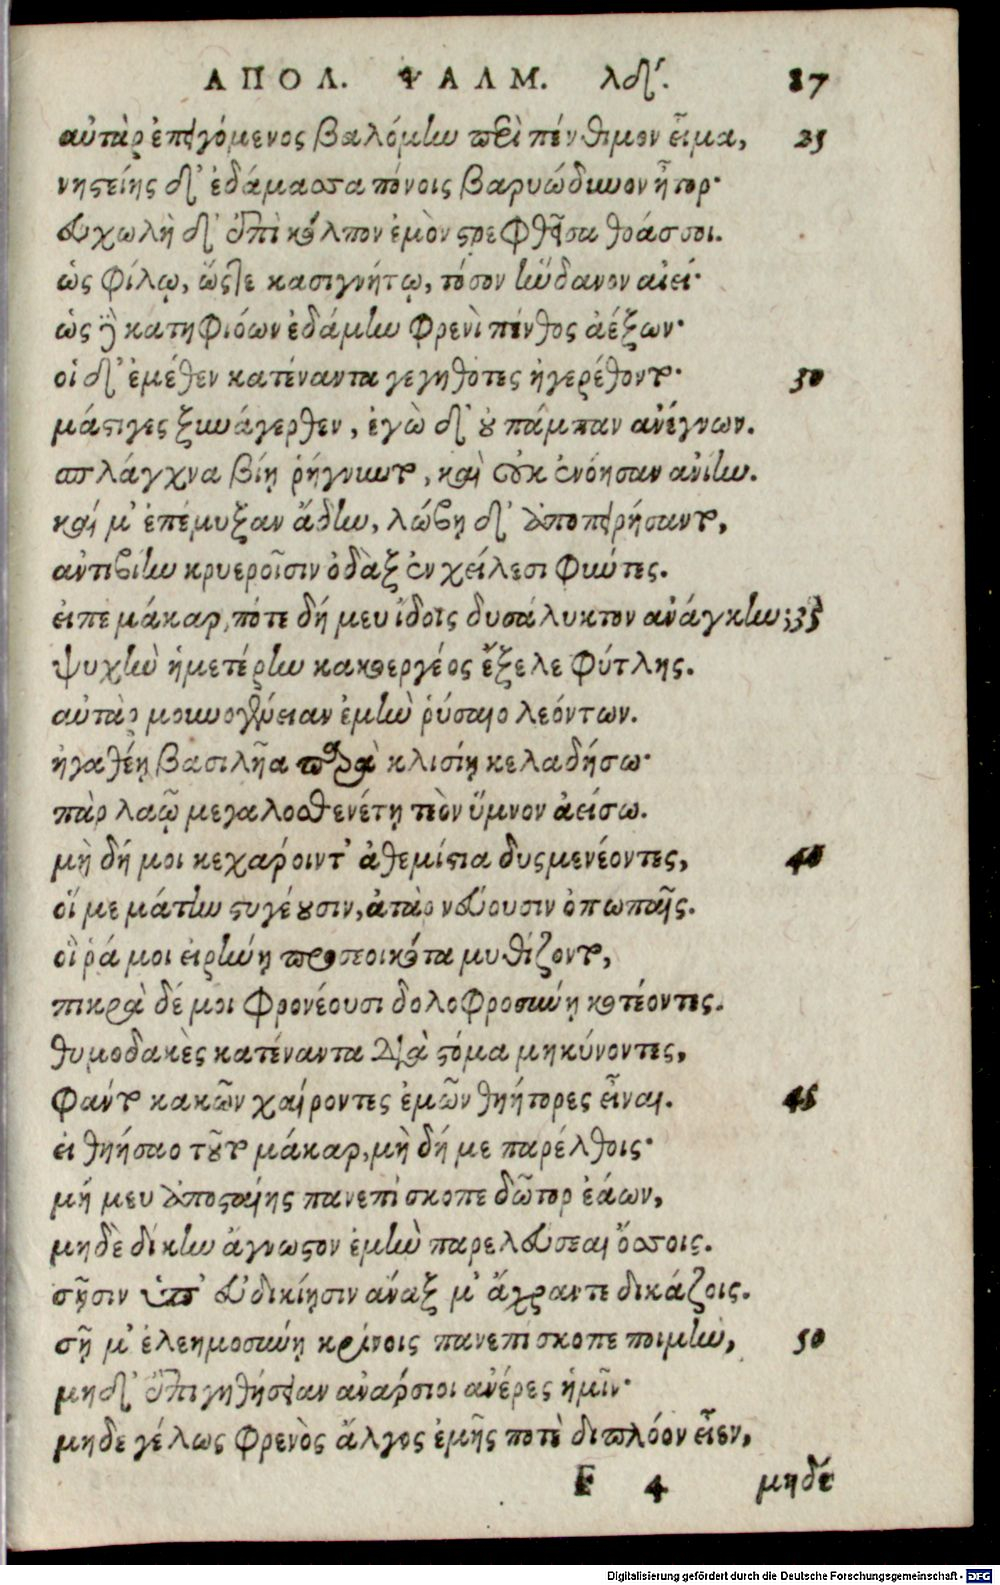 ΑΠΟΛ. ΨΑΛΜ. λδ΄. 87
αὐτὰρ ἐπειγόμενος βαλόμην περὶ πένθιμον εἷμα, 25
νηστείης δ᾽ ἐδάμασσα πόνοις βαρυώδυνον ἦτορ·
εὐχωλὴ δ᾽ ἐπὶ κόλπον ἐμὸν στρεφθεῖσα θοάσσοι.
ὡς φίλῳ, ὥςτε κασιγνήτῳ, τόσον ἥνδανον αἰεί·
ὡς ὃ κατηφιόων ἐδάμην φρενὶ πένθος ἀέξων·
οἱ δ᾽ ἐμέθεν κατέναντα γεγηθότες ἠγερέθοντο· 30
μάστιγες ξυνάγερθεν, ἐγὼ δ᾽ οὐ πάμπαν ἀνέγνων.
σπλάγχνα βίῃ ῥήγνυντο, καὶ οὐκ ἐνόησαν ἀνίην.
καί μ᾽ ἐπέμυξαν ἄδην, λώβῃ δ᾽ ἀποπειρήσαντο,
ἀντιβίην κρυεροῖσιν ὀδὰξ ἐν χείλεσι φῶντες.
εἰπε μάκαρ, πότε δή μευ ἴδοις δυσάλυκτον ἀνάγκην; 35
ψυχὴν ἡμετέρην κακοεργέος ἔξελε φύτλης.
αὐτὰρ μουνογένειαν ἐμὴν ῥύσαιο λεόντων.
ἠγαθέῃ βασιλῆα παρὰ κλισίῃ κελαδήσω·
πὰρ λαῷ μεγαλοσθενέτῃ τεὸν ὕμνον ἀείσω.
μὴ δή μοι κεχαροίντ᾽ ἀθεμίστια δυσμενέοντες, 40
οἵ με μάτην στυγέουσιν, ἀτὰρ νεύουσιν ὀπωπαῖς.
οἳ ῥά μοι εἰρήνῃ προσεοικότα μυθίζοντο,
πικρὰ δέ μοι φρονέουσι δολοφροσύνῃ κοτέοντες.
θυμοδακὲς κατέναντα διὰ στόμα μηκύνοντες,
φάντο κακῶν χαίροντες ἐμῶν θηήτορες εἶναι. 45
εἰ θηήσαο τοῦτο μάκαρ, μὴ δή με παρέλθοις·
μή μευ ἀποσταίης πανεπίσκοπε δῶτορ ἐάων,
μηδὲ δίκην ἄγνωστον ἐμὴν παρελεύσεαι ὄσσοις.
σῇσιν ὑπ᾽ εὐδικίῃσιν ἄναξ μ᾽ ἄχραντε δικάζοις.
σῇ μ᾽ ἐλεημοσύνῃ κρίνοις πανεπίσκοπε ποιμήν, 50
μηδ᾽ ἐπιγηθήσειαν ἀνάρσιοι ἀνέρες ἡμῖν·
μηδε γέλως φρενὸς ἄλγος ἐμῆς ποτὲ διπλόον εἶεν,
F 4 μηδέ
Digitalisierung gefördert durch die Deutsche Forschungsgemeinschaft - DFG